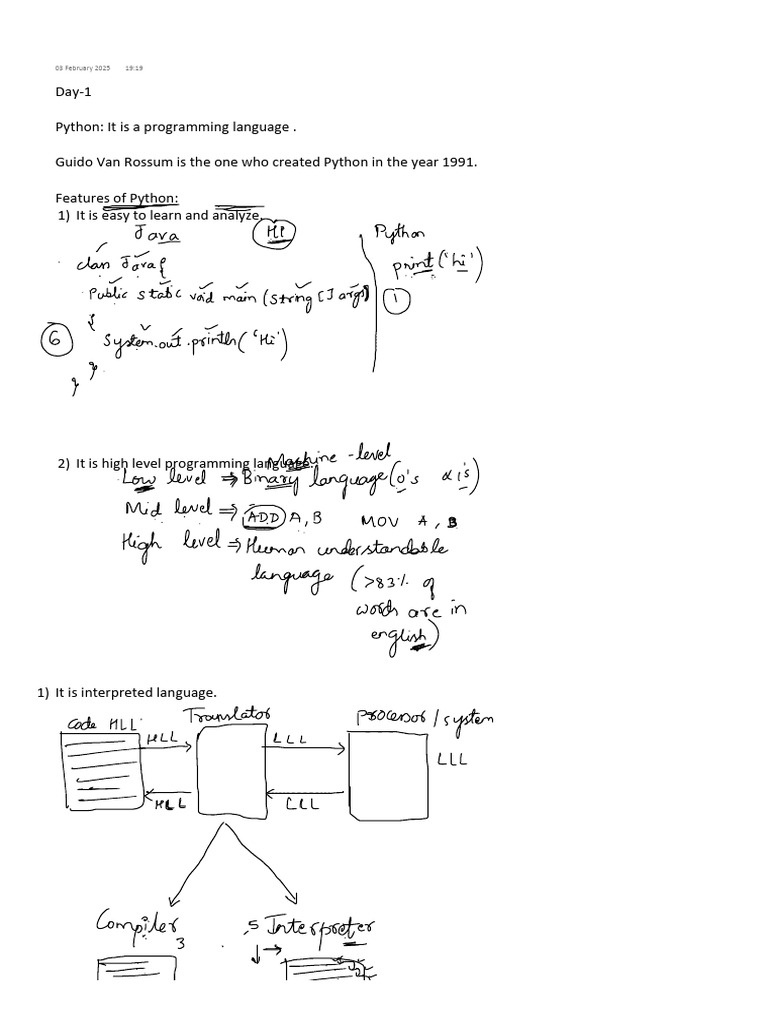 03 February 2025 19:19
Day-1
Python: It is a programming language .
Guido Van Rossum is the one who created Python in the year 1991.
Features of Python:
1) It is easy to learn and analyze.
Java
Hi
Python
class Java{
print('hi')
Public static void main (String [] args)
1
{
6
System.out.println('Hi')
}
}
2) It is high level programming language.
Machine-level
Low level ⇒ Binary language (0's & 1's)
Mid level ⇒ ADD A, B MOV A, B
High level ⇒ Human understandable
language (>83% of
words are in
english)
1) It is interpreted language.
Code HLL
Translator
Processor/system
HLL
LLL
LLL
HLL
LLL
Compiler
3
5
Interpreter